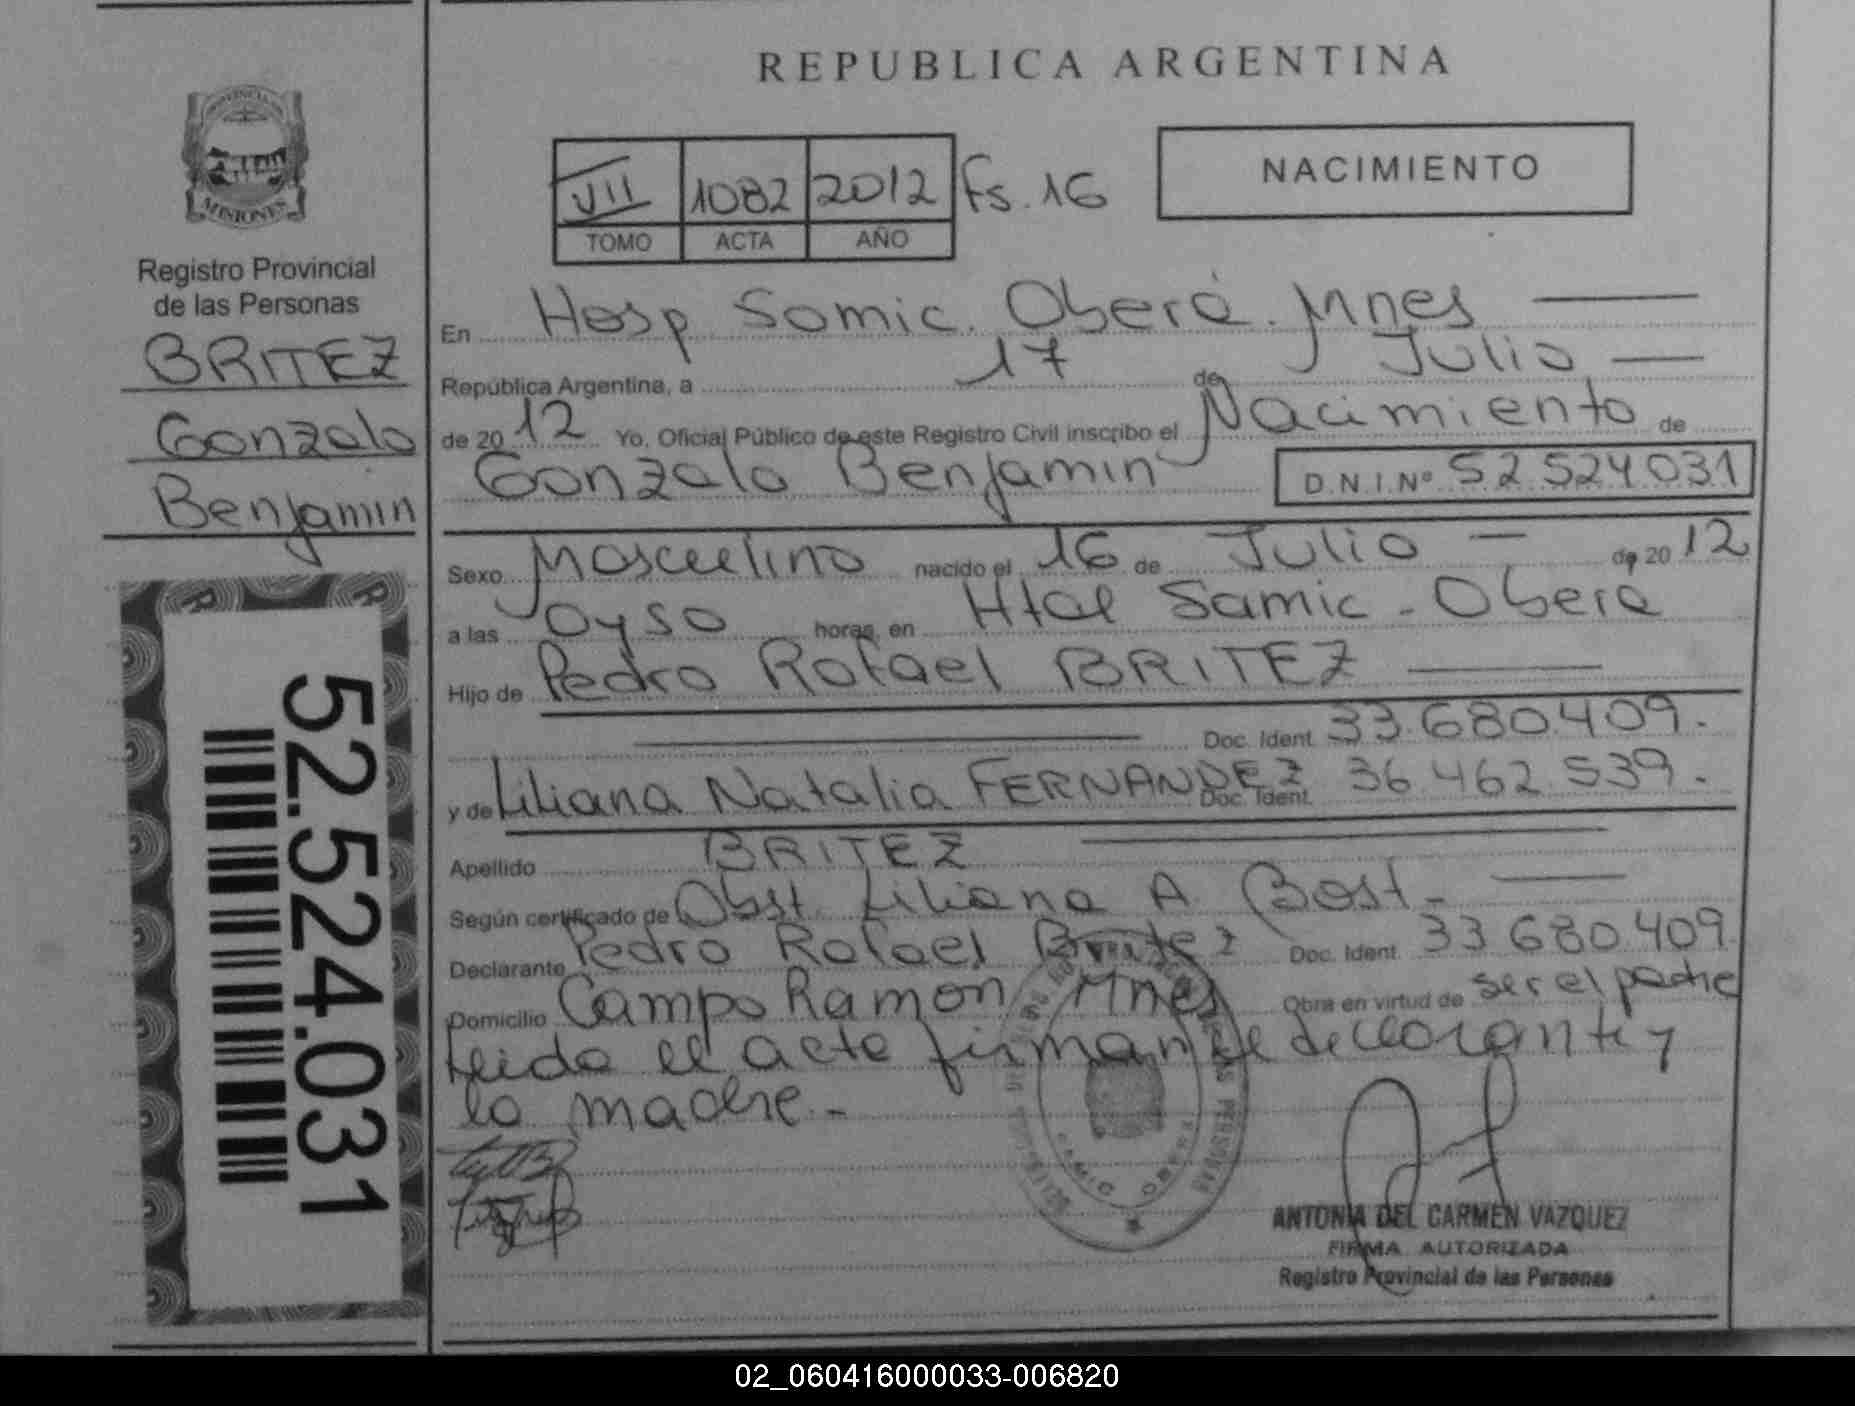 REPUBLICA ARGENTINA
PROVINCIA DE
MISIONES
Registro Provincial
de las Personas
BRITEZ
Gonzalo
Benjamin
52.524.031
VII 1082 2012 Fs. 16
TOMO ACTA AÑO
NACIMIENTO
En Hosp Samic. Oberá. Mnes
República Argentina, a 17 de Julio
de 2012 Yo, Oficial Público de este Registro Civil inscribo el Nacimiento de
Gonzalo Benjamin D.N.I.Nº 52 524 031
Sexo Masculino nacido el 16 de Julio de 2012
a las 04 50 horas, en Htal Samic - Oberá
Hijo de Pedro Rafael BRITEZ
Doc. Ident 33.680.409.
y de Liliana Natalia FERNANDEZ Doc. Ident. 36.462.539.
Apellido BRITEZ
Según certificado de Obst. Liliana A. Bost.
Declarante Pedro Rafael Britez Doc. Ident. 33.680.409
Domicilio Campo Ramon Mnes Obra en virtud de ser el padre
Leida el acta firman el declarante y
la madre.-
ANTONIA DEL CARMEN VAZQUEZ
FIRMA AUTORIZADA
Registro Provincial de las Personas
02_060416000033-006820